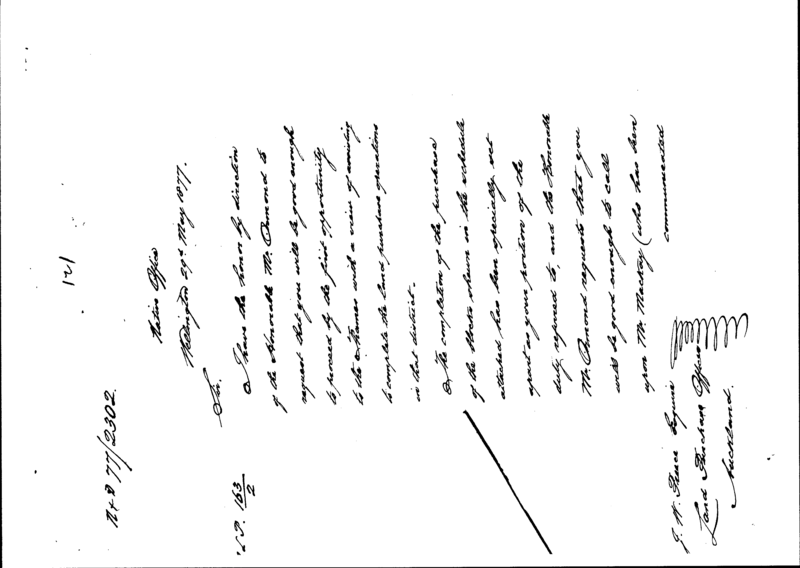 N & D 77/2302.
121
Native Office
Wellington 29th May 1877.
L.P. 163/2
Sir,
I have the honor by direction
of the Honorable Mr. Ormond to
request that you will be good enough
to proceed by the first opportunity
to the Thames with a view of assisting
to complete the land purchase operations
in that district.
The completion of the purchase
of the blocks shewn in the schedule
attached has been specially set
apart as your portion of the
duty referred to, and the Honorable
Mr. Ormond requests that you
will be good enough to call
upon Mr. Mackay (who has been
communicated
J. W. Preece Esquire
Land Purchase Officer
Auckland.